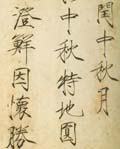 閏中秋月
中秋特地圓
澄鮮因懷勝